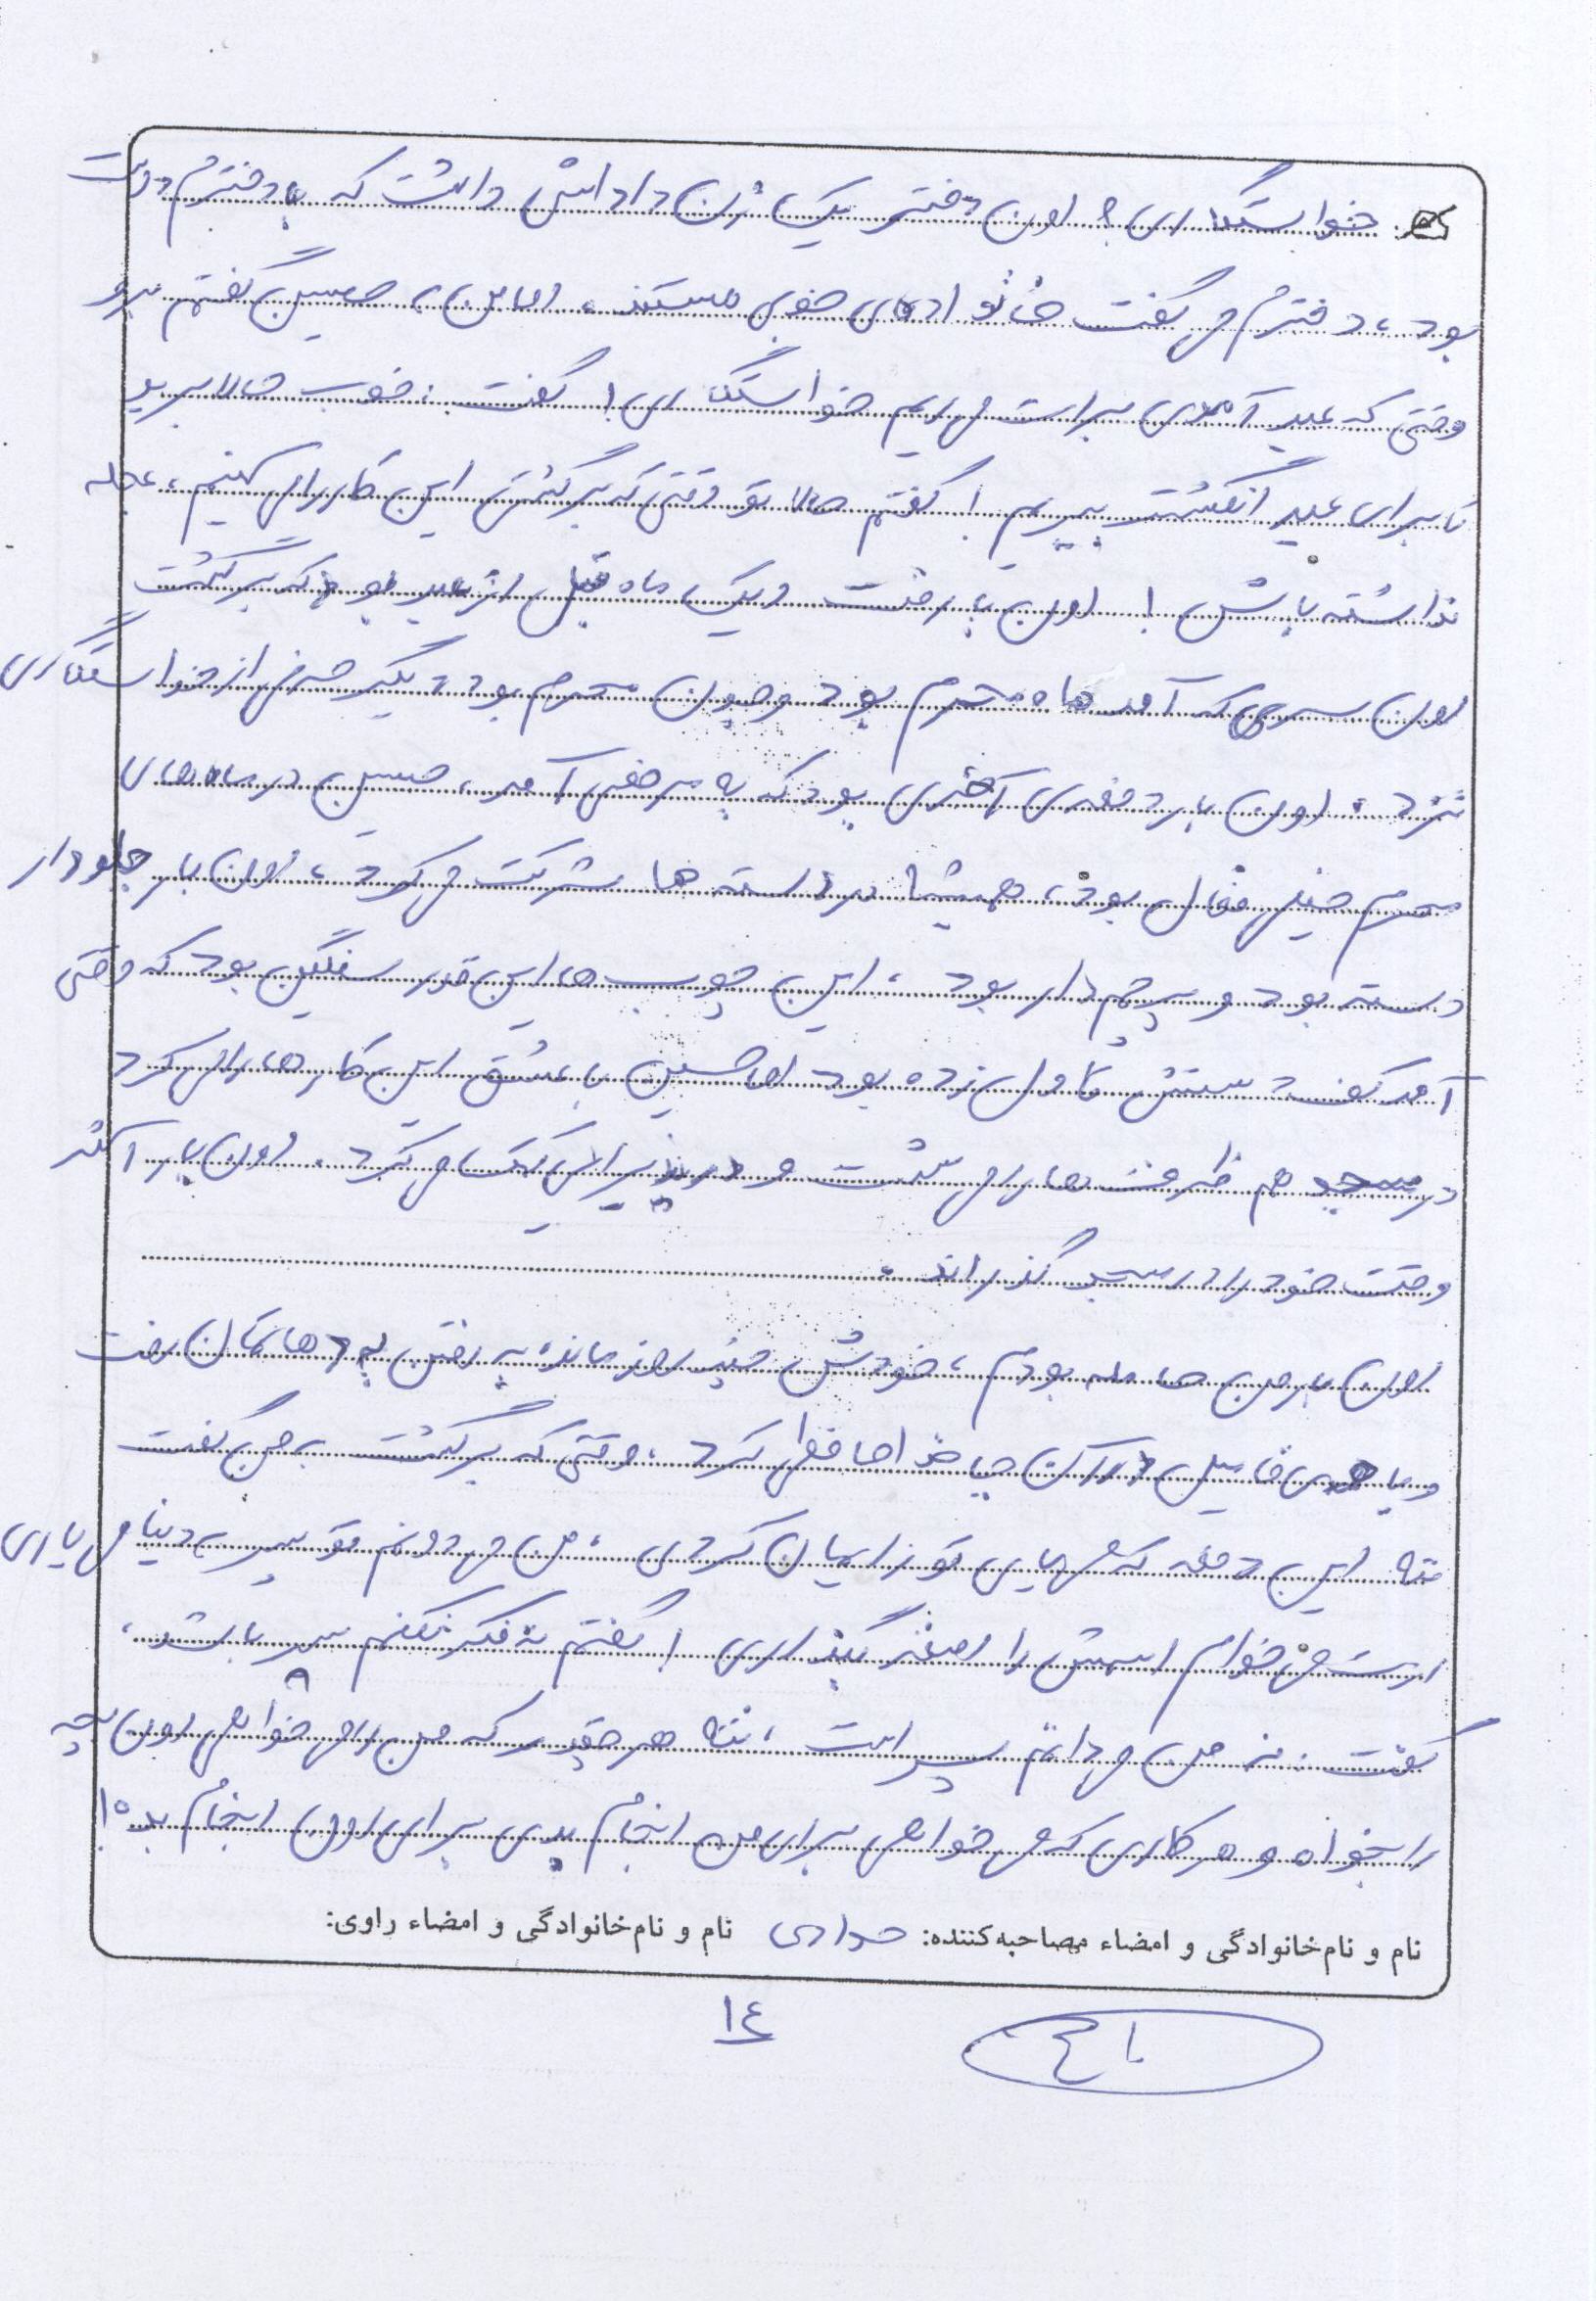 خواستگاری؟ اون دختر یک زن داداش داشت که با دخترم دوست
بود، دخترم می گفت خانواده‌ی خوبی هستند، اما من به حسین گفتم برو
وقتی که عید آمدی برات می ریم خواستگاری! گفت: خوب حالا برید
تا برای عید انگشتر ببریم! گفتم حالا تو وقتی که برگشتی این کار را می کنیم، عجله
نداشته باش! اون بار رفت و یک ماه قبل از عید بود که برگشت
اون سری که آمد ماه محرم بود و چون محرم بود دیگر حرفی از خواستگاری
نزد. اون بار دفعه‌ی آخری بود که به مرخصی آمد، حسین در ماه های
محرم خیلی فعال بود، همیشه در دسته ها شرکت می کرد، اون بار جلودار
دسته بود و پرچم دار بود، این چوب ها این قدر سنگین بود که وقتی
آمد کف دستش تاول زده بود اما حسین با عشق این کارها را می کرد
در مسجد هم ظرف ها را می شست و در پذیرایی کمک می کرد. اون بار اکثر
وقت خود را در مسجد گذراند.
اون بار من حامله بودم، خودش چند روز مانده به رفتن به دهاتمان رفت
و با همه‌ی فامیل در آن جا خداحافظی کرد، وقتی که برگشت به من گفت
ننه این دفعه که می یایی تو زایمان کردی، من می دونم تو پسر به دنیا می یاری
ازت می خوام اسمش را اصغر بگذاری! گفتم نه فکر نکنم پسر باشد،
گفت: نه من می دانم پسر است، ننه هر چقدر که من را می خواهی اون بچه
را بخواه و هر کاری که می خواهی برای من انجام بدی برای اون انجام بده!
نام و نام‌خانوادگی و امضاء مصاحبه‌کننده: جوادی نام و نام‌خانوادگی و امضاء راوی:
۱٤